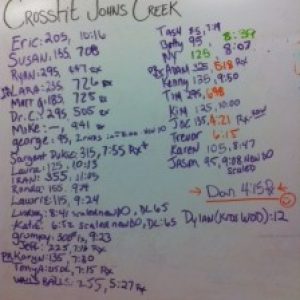 CrossFit Johns Creek
Eric: 205, 10:16
Susan: 155, 708
Ryan: 295, 647 Rx
Lara: 235, 726 Rx
Matt G: 185, 725
Dr. C.Y 295, 505 Rx
Mike: —, 941 Rx
george: 95,
Sargent Duke: 315, 7:55 Rx
Laura: 125, 10:13
Iran: 355, 11:05
Ronda: 155, 9
Lawrie: 115, 9:24
Lindsay: 8:41 scaled new DO, DL: 65
Katie: 6:52 scaled new DO, DL: 65
Grumpy: 300, 9:23
Jeff: 225, 7:16 Rx
PR Karyn: 135, 7:20
Tonya: 7:15 Rx
Walls Balls: 255, 5:27 Rx
Tash 85,
Betty 95, 8:39
NY 125, 8:07
Adam 518 Rx
Kenny 135, 9:50
Tim 295, 698
Kim 125, 10:00
Joe 135, 4:21 Rx
Trevor 6:15
Karen 105, 8:47
Jason 95, 9:08 New DO
scaled
Dan 4:15
Dylan (Kids WOD): 12